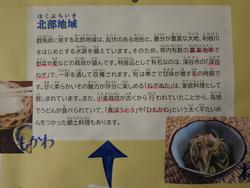 ほくぶちいき
北部地域
群馬県に接する北部地域は、起伏のある地形と、養分が豊富な大地、利根川
をはじめとする水源を備えています。そのため、県内有数の農業地帯で
野菜や麦などの栽培が盛んです。特産品として有名なのは、深谷市の「深谷
ねぎ」で、一年を通して収穫されます。旬は寒さで甘味が増す冬の時期で
す。甘く柔らかいその魅力が存分に楽しめる「ねぎぬた」は、家庭料理として
親しまれています。また、小麦栽培が古くから行われていたことから、各地
でうどんが食べられていて、「煮ぼうとう」や「ひもかわ」という太く平たいめ
んをつかった郷土料理もあります。
もかわ